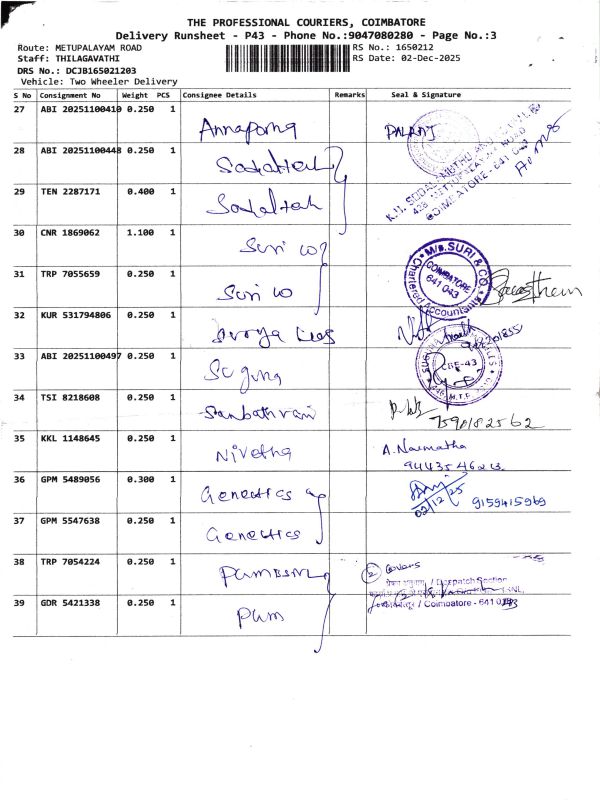 THE PROFESSIONAL COURIERS, COIMBATORE
Delivery Runsheet - P43 - Phone No.:9047080280 - Page No.:3
Route: METUPALAYAM ROAD
RS No.: 1650212
Staff: THILAGAVATHI
RS Date: 02-Dec-2025
DRS No.: DCJB165021203
Vehicle: Two Wheeler Delivery
S No Consignment No Weight PCS Consignee Details Remarks Seal & Signature
27 ABI 20251100410 0.250 1
Annaporna
28 ABI 20251100448 0.250 1
29 TEN 2287171 0.400 1
COIMBATORE - 641 043
30 CNR 1869062 1.100 1
Suri co
M/s. SURI & CO.
Chartered Accountants
COIMBATORE
641 043
31 TRP 7055659 0.250 1
Suri co
32 KUR 531794806 0.250 1
33 ABI 20251100497 0.250 1
Suguna
CBE-43
34 TSI 8218608 0.250 1
Sanbathrani
7590182562
35 KKL 1148645 0.250 1
Nivetha
A. Narmatha
36 GPM 5489056 0.300 1
Genetics
02/12/25
9159415969
37 GPM 5547638 0.250 1
Genetics
38 TRP 7054224 0.250 1
PGMBSNL
2 Covers
/ Despatch Section
39 GDR 5421338 0.250 1
PGM
/ Coimbatore - 641 043